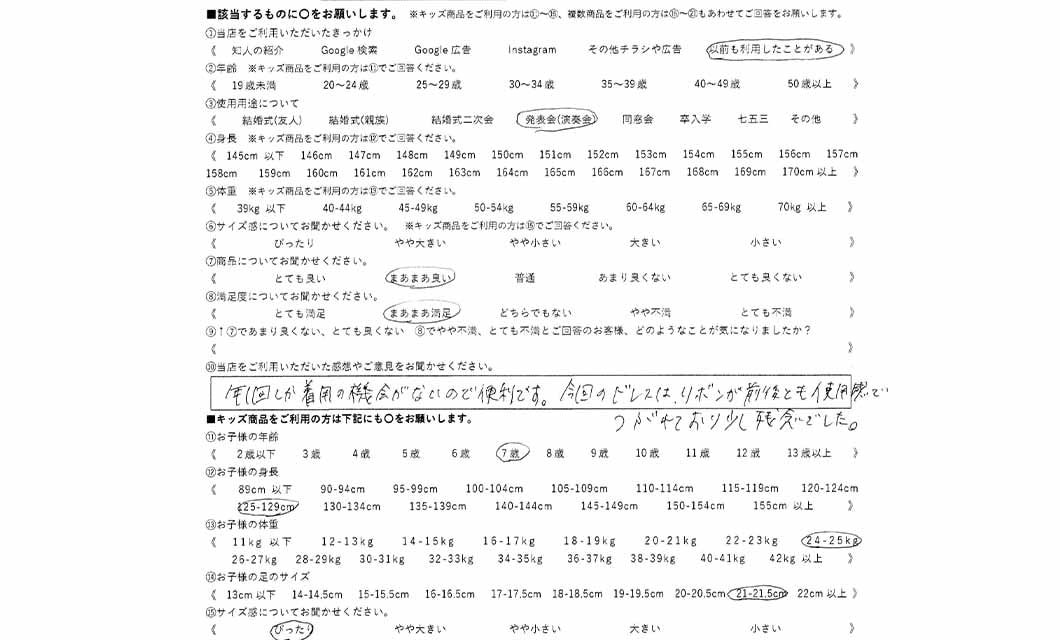 ■該当するものに〇をお願いします。 ※キッズ商品をご利用の方は⑪〜⑱、複数商品をご利用の方は⑲〜㉑もあわせてご回答をお願いします。
①当店をご利用いただいたきっかけ
《 知人の紹介 Google 検索 Google 広告 Instagram その他チラシや広告 以前も利用したことがある 》
②年齢 ※キッズ商品をご利用の方は⑪でご回答ください。
《 19歳未満 20〜24歳 25〜29歳 30〜34歳 35〜39歳 40〜49歳 50歳以上 》
③使用用途について
《 結婚式(友人) 結婚式(親族) 結婚式二次会 発表会(演奏会) 同窓会 卒入学 七五三 その他 》
④身長 ※キッズ商品をご利用の方は⑫でご回答ください。
《 145cm 以下 146cm 147cm 148cm 149cm 150cm 151cm 152cm 153cm 154cm 155cm 156cm 157cm
158cm 159cm 160cm 161cm 162cm 163cm 164cm 165cm 166cm 167cm 168cm 169cm 170cm 以上 》
⑤体重 ※キッズ商品をご利用の方は⑬でご回答ください。
《 39kg 以下 40-44kg 45-49kg 50-54kg 55-59kg 60-64kg 65-69kg 70kg 以上 》
⑥サイズ感についてお聞かせください。 ※キッズ商品をご利用の方は⑮でご回答ください。
《 ぴったり やや大きい やや小さい 大きい 小さい 》
⑦商品についてお聞かせください。
《 とても良い まあまあ良い 普通 あまり良くない とても良くない 》
⑧満足度についてお聞かせください。
《 とても満足 まあまあ満足 どちらでもない やや不満 とても不満 》
⑨↑⑦であまり良くない、とても良くない ⑧でやや不満、とても不満とご回答のお客様、どのようなことが気になりましたか?
《 》
⑩当店をご利用いただいた感想やご意見をお聞かせください。
年1回しか着用の機会がないので便利です。今回のドレスは、リボンが前後とも使用感で
つかれており少し残念でした。
■キッズ商品をご利用の方は下記にも〇をお願いします。
⑪お子様の年齢
《 2歳以下 3歳 4歳 5歳 6歳 7歳 8歳 9歳 10歳 11歳 12歳 13歳以上 》
⑫お子様の身長
《 89cm 以下 90-94cm 95-99cm 100-104cm 105-109cm 110-114cm 115-119cm 120-124cm
125-129cm 130-134cm 135-139cm 140-144cm 145-149cm 150-154cm 155cm 以上 》
⑬お子様の体重
《 11kg 以下 12-13kg 14-15kg 16-17kg 18-19kg 20-21kg 22-23kg 24-25kg
26-27kg 28-29kg 30-31kg 32-33kg 34-35kg 36-37kg 38-39kg 40-41kg 42kg 以上 》
⑭お子様の足のサイズ
《 13cm 以下 14-14.5cm 15-15.5cm 16-16.5cm 17-17.5cm 18-18.5cm 19-19.5cm 20-20.5cm 21-21.5cm 22cm 以上 》
⑮サイズ感についてお聞かせください。
《 ぴったり やや大きい やや小さい 大きい 小さい 》